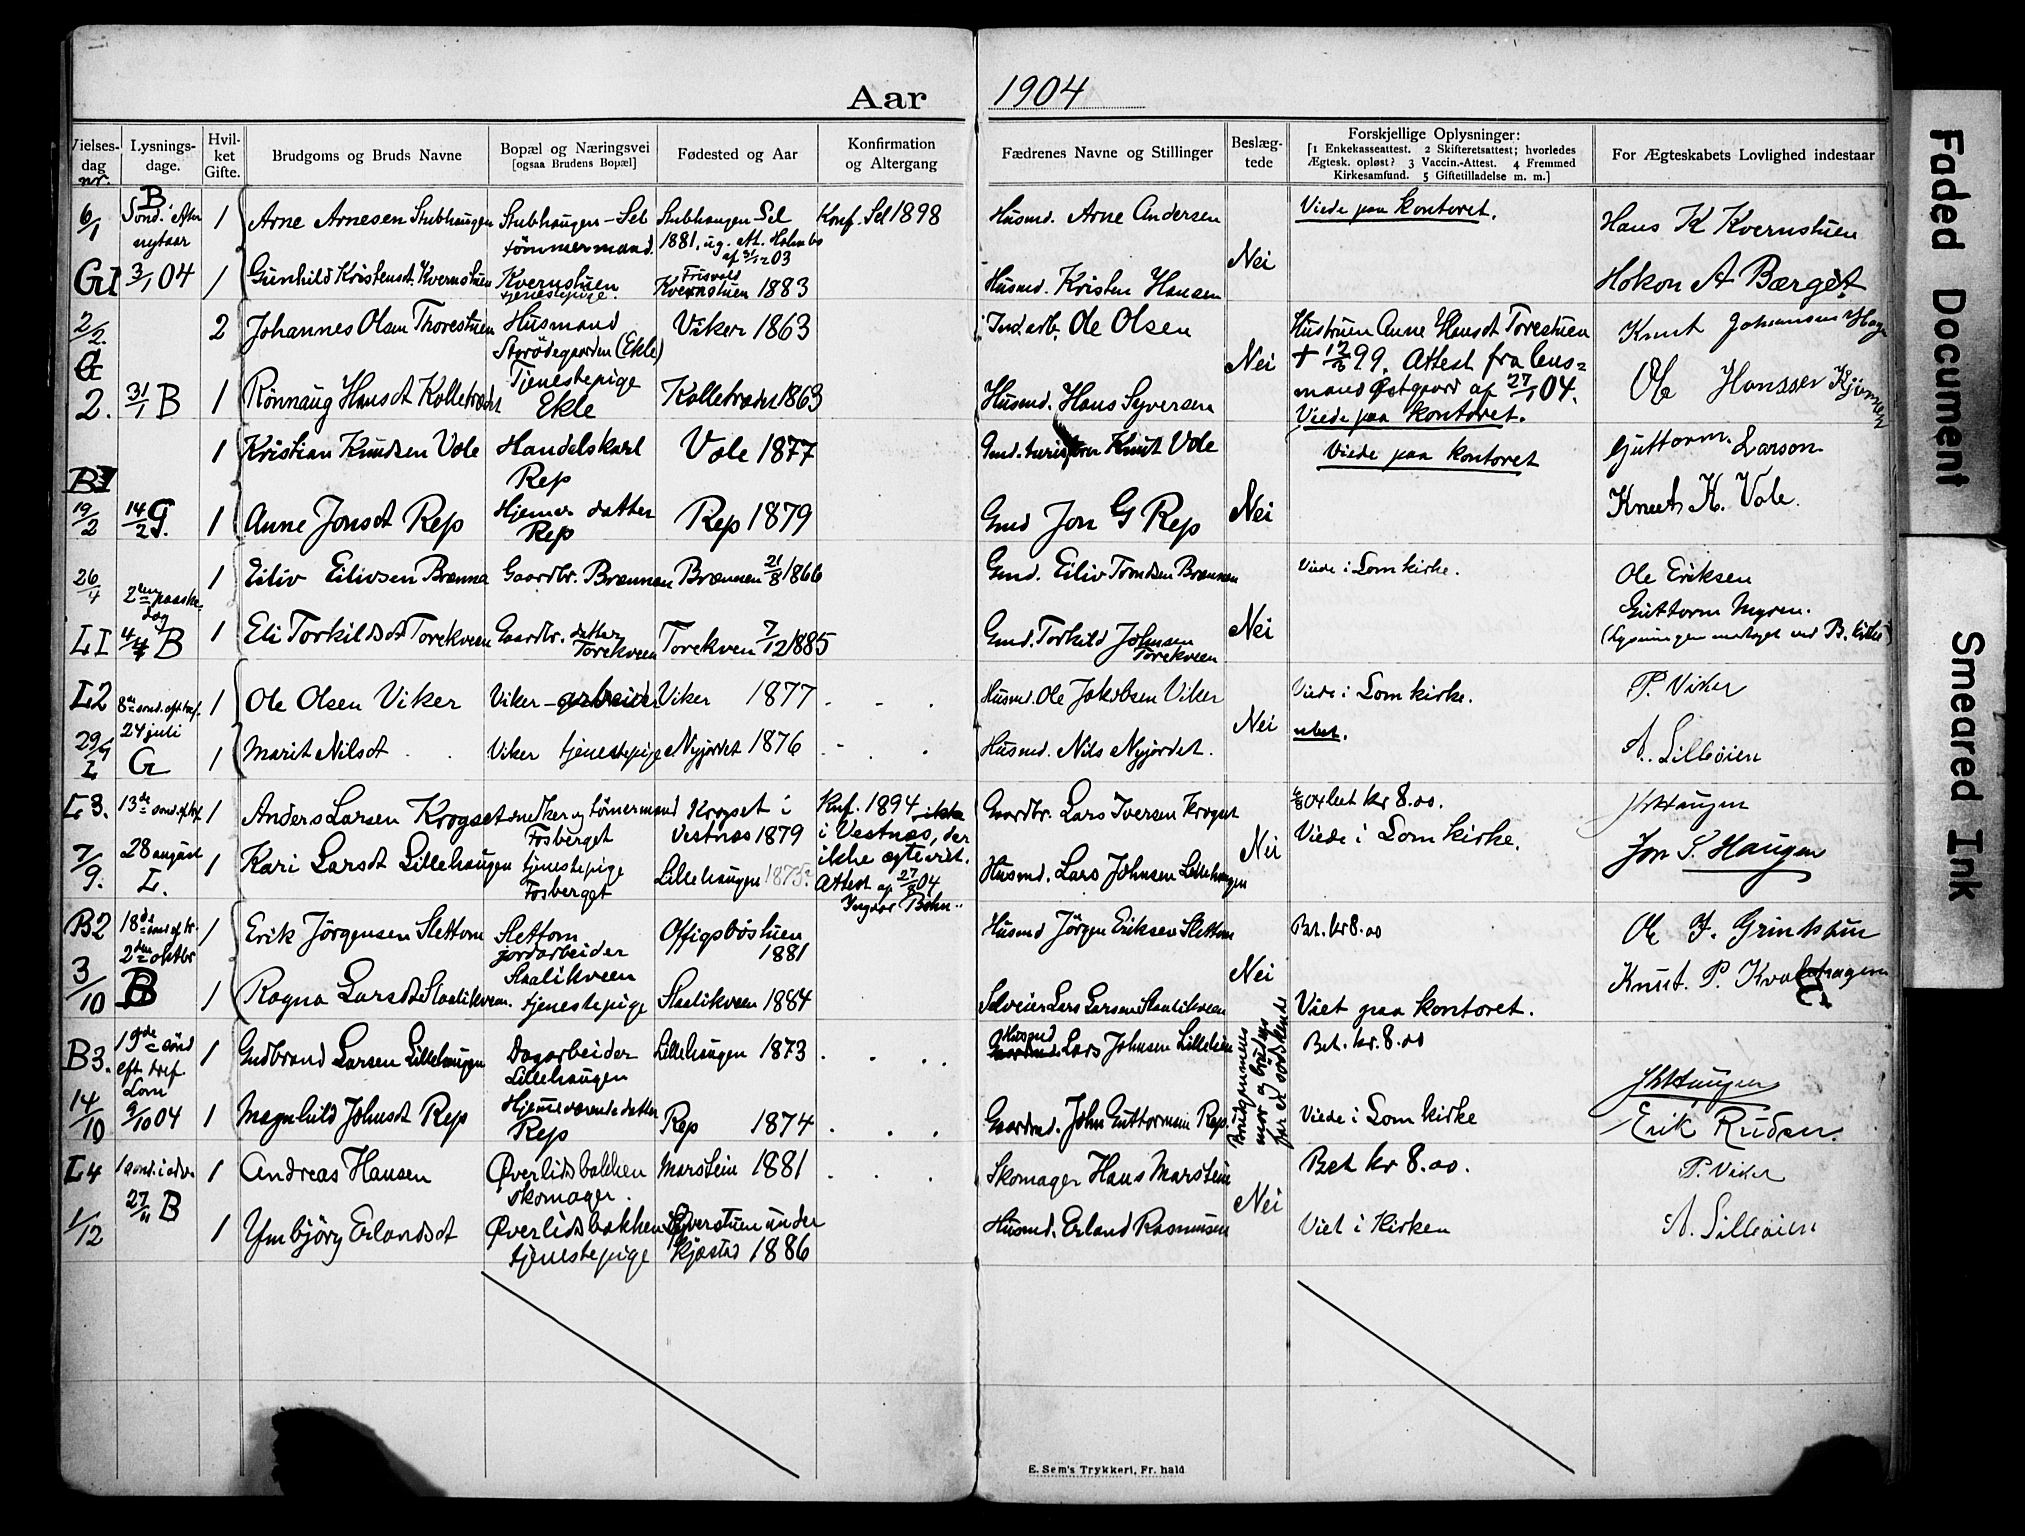 Aar 1904
Vielses-dag nr.
Lysnings-dage.
Hvil-ket Gifte.
Brudgoms og Bruds Navne
Bopæl og Næringsvei
[ogsaa Brudens Bopæl]
Fødested og Aar
Konfirmation
og Altergang
Fædrenes Navne og Stillinger
Beslæg-tede
Forskjellige Oplysninger:
[1 Enkekasseattest. 2 Skifteretsattest; hvorledes
Ægtesk. opløst? 3 Vaccin.-Attest. 4 Fremmed
Kirkesamfund. 5 Giftetilladelse m. m.]
For Ægteskabets Lovlighed indestaar
6/1 B Sønd. Efter nytaar 1 Arne Arnesen Stubhaugen
Stubhaugen - Sel
tömmermand.
Stubhaugen Sel
1881, ug. att.
af 31/12 03
Konf. Sel 1898
Husmd. Arne Andersen
Nei
Viede paa kontoret.
Hans K Kvernstuen
G1 3/1 04 1 Gunhild Kristensdt. Kvernstuen
Kvernstuen
tjenestepige.
Kvernstuen 1883
Husmd. Kristen Hansen
Hokon A Bærget
2/2 2 Johannes Olsen Thorestuen
Husmand
Storödegaarden (Ekle)
Viker 1863
Ind.arb. Ole Olsen
Nei
Hustruen Anne Hansdt Torestuen
+ 99. Attest fra lens=
mand Østgaard af 27/1 04.
Viede paa kontoret.
Knut Johansen Hage
G
2. 31/1 B 1 Rönnaug Hansdt Kolletrædet
Tjenestepige
Ekle
Kolletrædet 1863
Husmd. Hans Syversen
Ole Hansser
1 Kristian Knudsen Vole
Handelskarl
Rep
Vole 1877
Knut Vole
Viede paa kontoret
Guttorm Larson
B1
19/2 14/2 G. 1 Anne Jonsdt Rep
Hjemmedatter
Rep
Rep 1879
Gmd Jon G Rep
Nei
Knut K. Vole.
26/4 1 Eiliv Eilivsen Brenna
Gaardbr. Brennen
Brennen 21/8 1866
Gmd. Eiliv Tomdsen Brennen
Viede i Lom kirke.
Ole Eriksen
Guttorm Myren.
L1 2den paaske-dag
4/4 B 1 Eli Torkildsdt Torekveen
Gaardbr. datter
Torekveen
Torekven 7/12 1885
Gmd. Torkild Johnsen
Torekveen
Nei
L2 8de sönd. eft tref. 1 Ole Olsen Viker
Viker - arbeider
Viker 1877
Husmd. Ole Jakobsen Viker
Viede i Lom kirke.
P. Viker
24 juli
G 1 Marit Nilsdt
Viker tjenestepige
Nyjordet 1876
Husmd. Nils Nyjordet.
Nei
ubet.
A. Lilleöien
L3. 13de sönd. eft tref 1 Anders Larsen Krogset
snedker og tömermand
Fosberget
Krogset i
Vestnæs 1879
Knf. 1894 ikke
i Vestnæs, der
ikke ægteviet.
Attest af 27/8 04
Gaardbr. Lars Iversen Krogset
bet kr 8.00.
Viede i Lom kirke.
7/9. 28 august
L. 1 Kari Larsdt Lillehaugen
tjenestepige
Fosberget
Lillehaugen 1875?
Husmd. Lars Johnsen Lillehaugen
Nei
Jon S. Haugen
B2 18de sönd ef tr. 1 Erik Jörgensen Slettom
Slettom
jordarbeider
Offigsböstuen
1881
Husmd Jörgen Eriksen Slettom
Bet. kr 8.00
3/10 2den oktbr
B 1 Ragna Larsdt Staalikveen.
Staalikveen
tjenestepige
Staalikveen 1884
Selveier Lars Larsen Staalikveen
Nei
Viet paa kontoret.
Knut. P. Kvalehagen
B3. 19de sönd
eft. tref. 1 Gudbrand Larsen Lillehaugen
Dagarbeider
Lillehaugen
Lillehaugen 1873
Husmd
Lars Johnsen Lillehaugen
Bet. kr. 8.00
14/10 Lom
9/10 04 1 Magnhild Johnsdt Rep
Hjemmeværende datter
Rep
Rep 1874
Gaardmd. John Guttormsen Rep.
Brudgommens
mor og brudens
far er södskende
Viede i Lom kirke
Erik Rudsen.
L4 1 sönd. i adv. 1 Andreas Hansen
Øverlidsbakken
skomager.
Marstein 1881
Skomager Hans Marstein
Bet kr 8.00.
P. Viker
1/12 27/11 B 1 Ymbjörg Erlandsdt
Øverlidsbakken
tjenestepige
under
Kjæstad 1886
Husmd. Erland Rasmussen
Nei
Viet i Kirken
A. Lilleöien
E. Sem's Trykkeri, Fr. hald
Faded Document
Smeared Ink